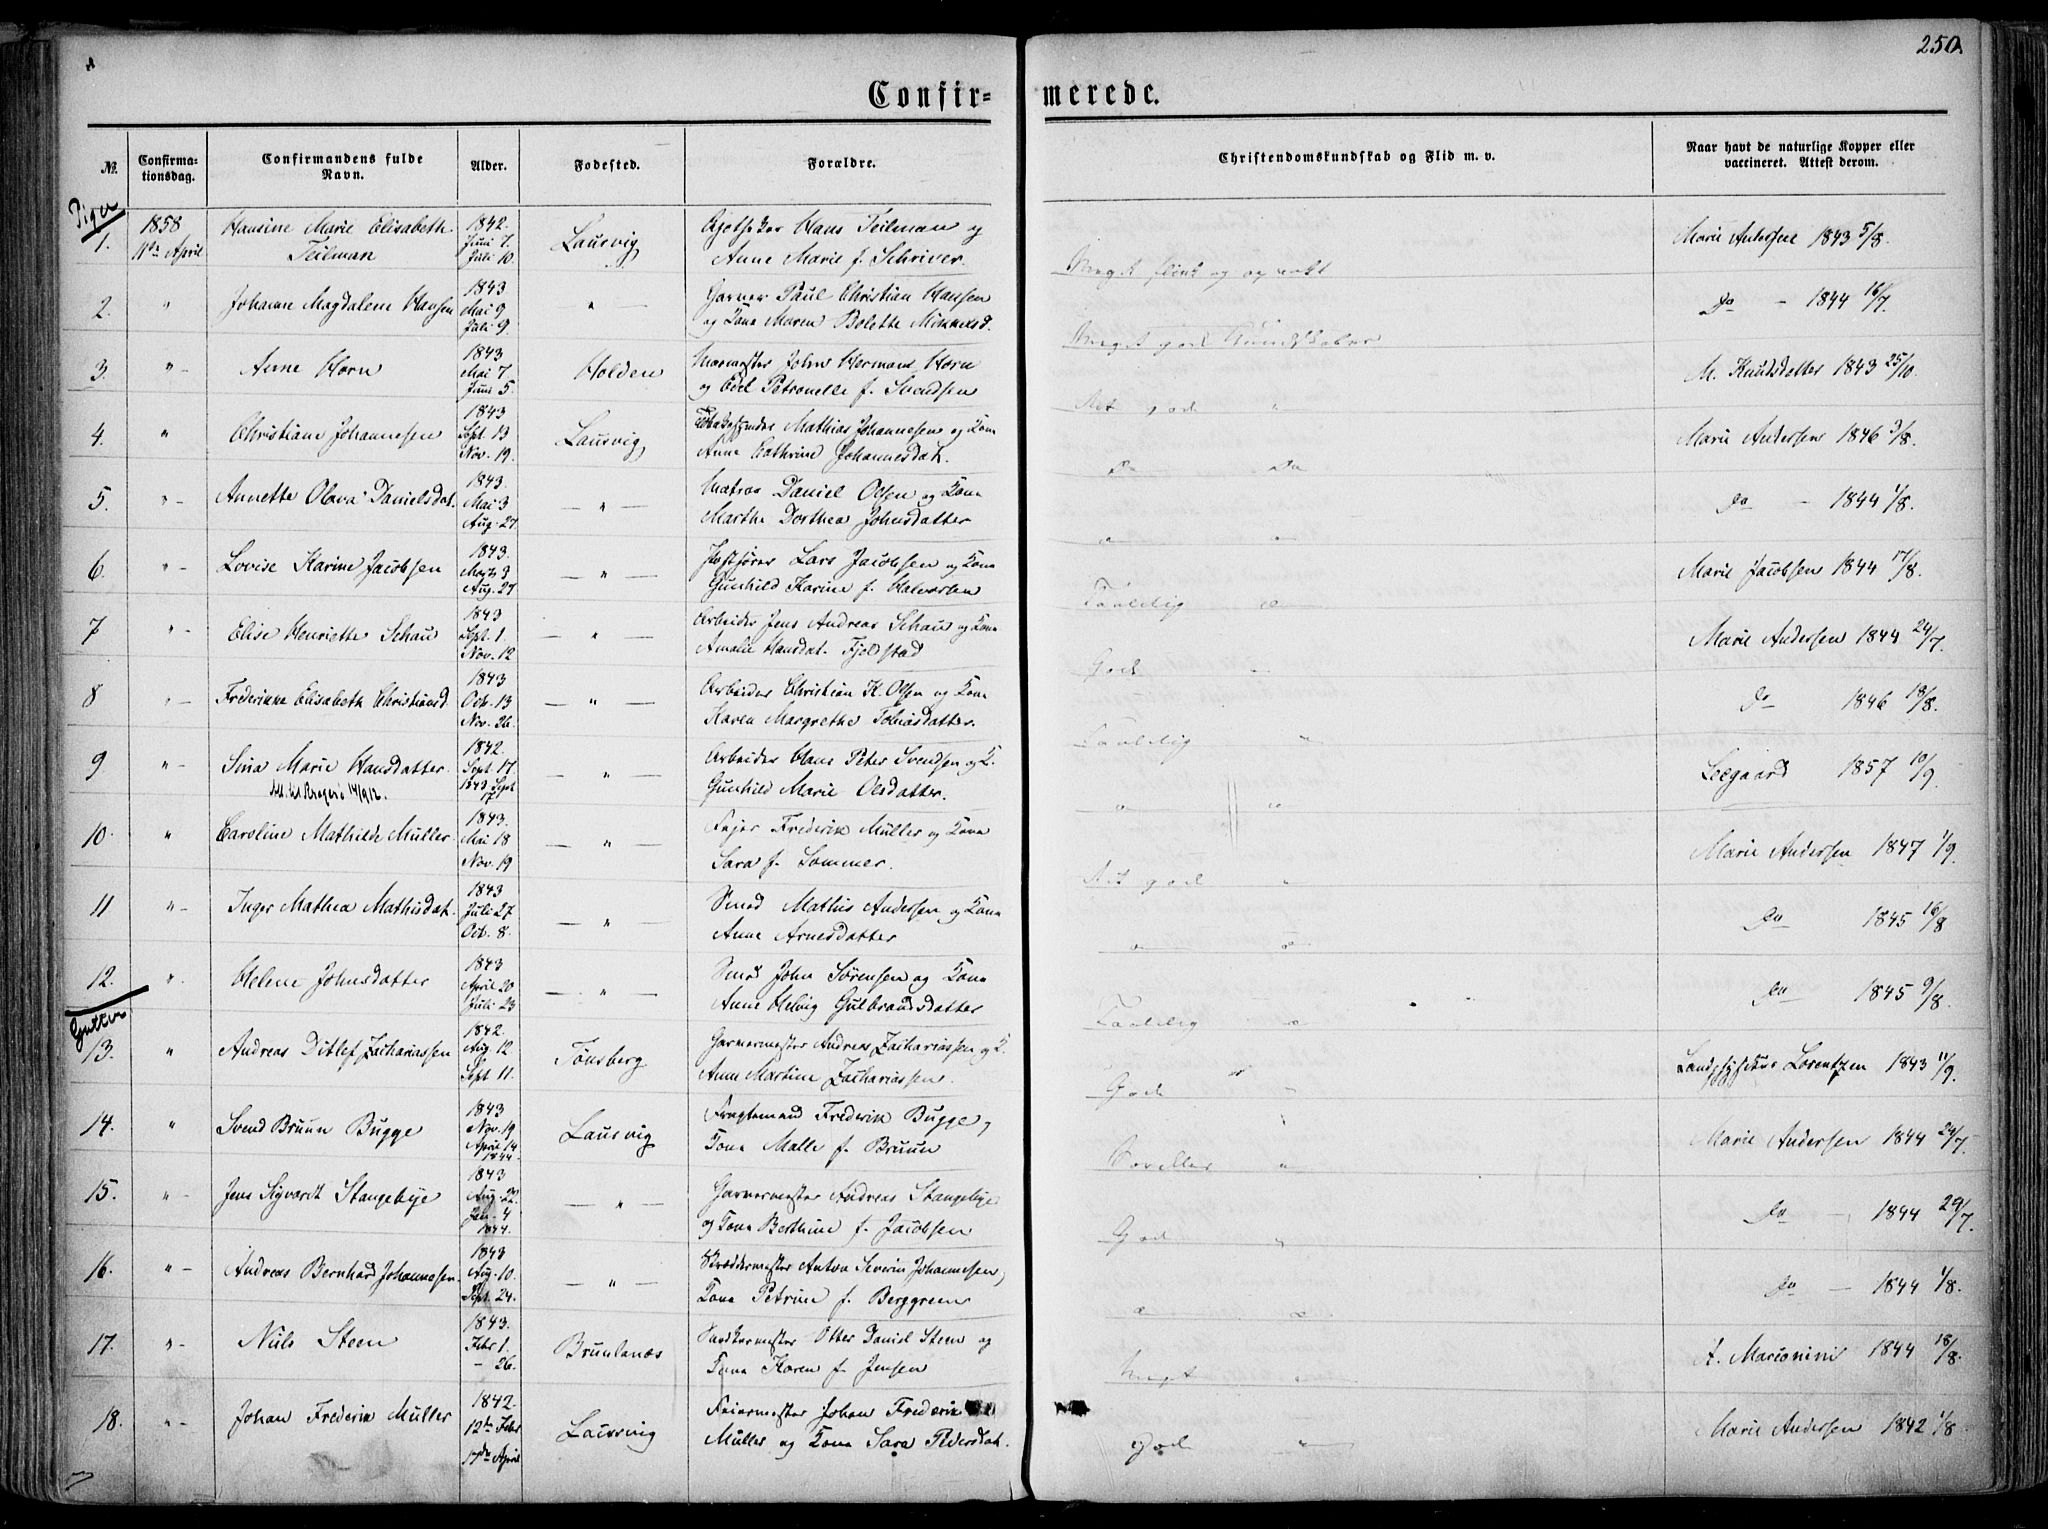 250.
Confirmerede.
No. Confirmationsdag. Confirmandens fulde Navn. Alder. Fødested. Forældre. Christendomskundskab og Flid m. v. Naar havt de naturlige Kopper eller vaccineret. Attest derom.
Piger
1. 1858 11te April Hansine Marie Elisabeth Teilman 1842. Juni 7. Juli 10. Laurvig Hans Teilman og Anne Marie f. Schriver. Meget flink og Marie Andersen 1843 5/8.
2. " Johanne Magdalene Hansen 1843 Mai 9 Juli 9. " Garver Paul Christian Hansen og Kone Maren Bolette Meget god Kundskaber Do - 1844 16/7.
3. "- Anne Horn 1843 Mai 7 Juni 5. Holden John Herman Horn og Edel Petronelle f. Svendsen Ret god " M. Knudsdatter 1843 25/10.
4. " Christiane Johannesen 1843 Sept. 13 Nov. 19. Laurvig Mathias Johannesen og Kone Anne Cathrine Johannesdat. Do Do Marie Andersen 1846 3/8.
5. "- Annette Olava Danielsdat. 1843. Mai 3 Aug. 27. — " — Matros Daniel Olsen og Kone Marthe Dorthea Johnsdatter " " Do - 1844 1/8.
6. "- Lovise Karine Jacobsen 1843. Aug. 27 — " — Lars Jacobsen og Kone Gunhild Karine f. Halvorsen Taalelig " Marie Jacobsen 1844 17/8.
7 "- Elise Henriette Schau 1843 Sept. 1. Nov. 12 — " — Arbeider Jens Andreas Schau og Kone Amalie Hansdat. Fjeldstad God " Marie Andersen 1844 24/7.
8 "- Frederikke Elisabeth Christiansd. 1843 Oct. 13 Nov. 26. — " — Arbeider Christian K. Olsen og Kone Karen Margrethe Tobiasdatter. Taalelig " Do 1846 18/8.
9 "- Sina Marie Hansdatter. 1842. Sept. 17. 1843 Sept 17. — " — Arbeider Hans Peter Svendsen og K. Gunhild Marie Olsdatter. " " Leegaard 1857 10/9.
Kragerø 14/9 12.
10. " Caroline Mathilde Müller. 1843. Mai 18 Nov. 19 — " — Fejer Frederik Müller og Kone Sara f. Sommer. Ret god " Marie Andersen 1847 1/9.
11 "- Inger Mathea Mathisdat. 1843 Juli 27 Oct. 8. — " — Smed Mathis Andersen og Kone Anne Arnesdatter " " Do 1845 16/8
12. ". Helene Johnsdatter 1843 April 20 Juli 23 — " — Smed John Sørensen og Kone Anne Helvig Gulbrandsdatter Taalelig " Do 1845 9/8.
Gutter
13. " Andreas Ditlef Zachariassen 1842. Aug. 12 Sept 11. Tønsberg Garvermester Andreas Zachariassen og K. Anne Martine Zachariassen. God " Lorentzen 1843 11/9.
14. " Svend Bruun Bugge 1843 Nov. 19 April 14 1844. Laurvig Fragtemand Frederik Bugge, Kone Malle f. Bruun " Marie Andersen 1844 24/7.
15. "- Jens Sigvardt Stangebye 1843 Aug. 22. Jan. 4 1844. — " — Garvermester Andreas Stangebye og Kone Berthine f. Jacobsen God " Do - 1844 29/7.
16. "- Andreas Bernhard Johannesen. 1843 Aug. 10. Sept. 24. — " — Skræddermester Anton Severin Johannesen, Kone Petrine f. Berggreen " " Do - 1844 1/8.
17. "- Nils Steen 1843. Febr 1. - 26. Brunlanæs Snedkermester Otter Daniel Steen og Kone Karen f. Jensen Meget " A. Marconini 1844 18/8.
18. "- Johan Frederik Müller 1842. 12te Febr 17de April Laurvig Feiermester Johan Frederik Müller og Kone Sara Pedersdat. God " Marie Andersen 1842 1/8.